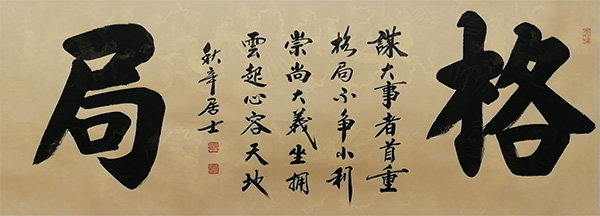 格
謀大事者首重
格局不争小利
崇尚大義坐拥
雲起心容天地
秋辛居士
局